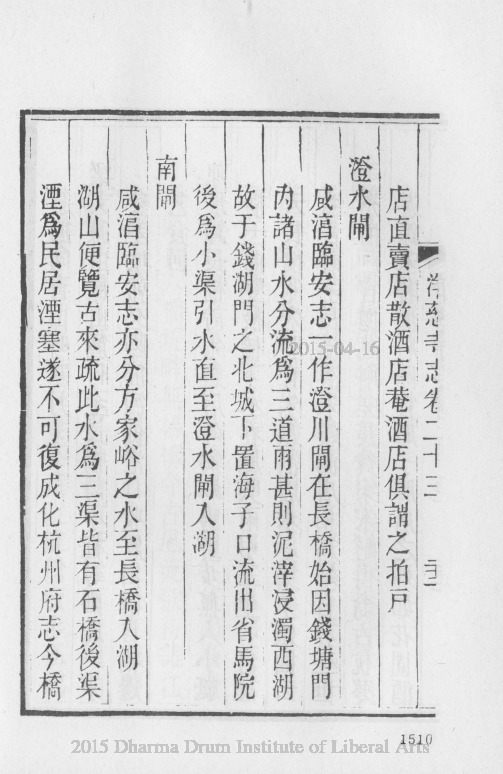 淨慈寺志卷二十三
店直賣店散酒店菴酒店俱謂之拍戶
澄水閘
咸淳臨安志一作澄川閘在長橋始因錢塘門
內諸山水分流爲三道雨甚則泥滓浸濁西湖
故于錢湖門之北城下置海子口流出省馬院
後爲小渠引水直至澄水閘入湖
南閘
咸淳臨安志亦分方家峪之水至長橋入湖
湖山便覽古來疏此水爲三渠皆有石橋後渠
湮爲民居湮塞遂不可復成化杭州府志今橋
2015-04-16
1510
2015 Dharma Drum Institute of Liberal Arts